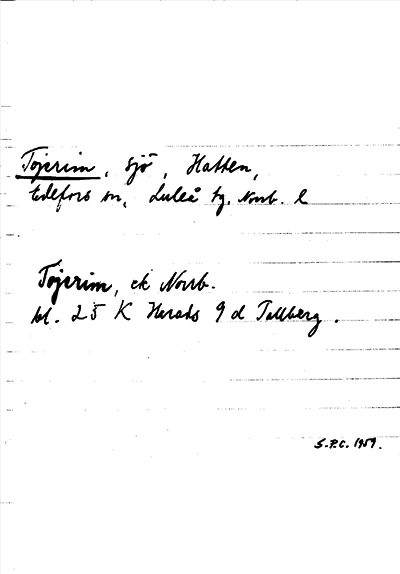 Töjerim, sjö, Hatten,
Edefors sn, Luleå tg. Norrb. l
Töjerim, ek Norrb.
bl. 25 K Harads 9 d Tallberg.
S.P.C. 1959.